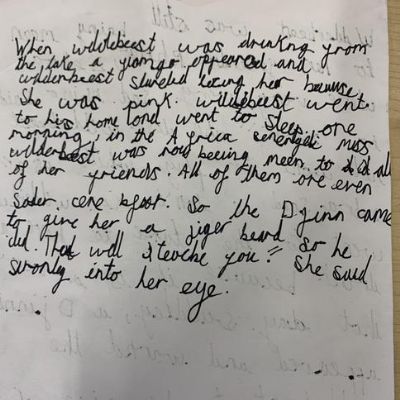 When wildebeest was drinkng from
the lake a flamgo oppeared and
wilderbeest started loving her because
She was pink. wildebeest went
to his home lond went to sleep. one
morning, in the Africa serengeti miss
wilderbeest was now beeing meen to
of her friends. All of them ore even
So the Djinn came
to give her a beard so he
did. That will teache you!! She said
stronly into her eye.